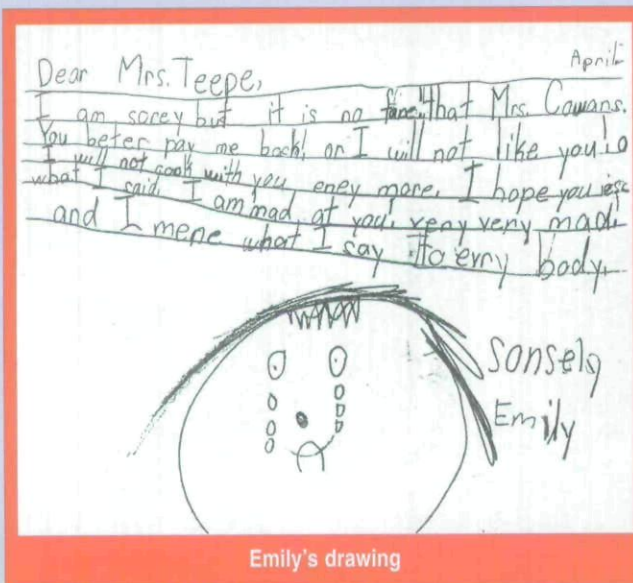 April
Dear Mrs. Teepe,
I am sorey but it is no that Mrs. Cowans.
You beter pay me back! or I will not like you!
I will not cook with you eney more. I hope you
what I said, I am mad at you, very very mad,
and I mene what I say to evry body,
Sonsely
Emily
Emily's drawing